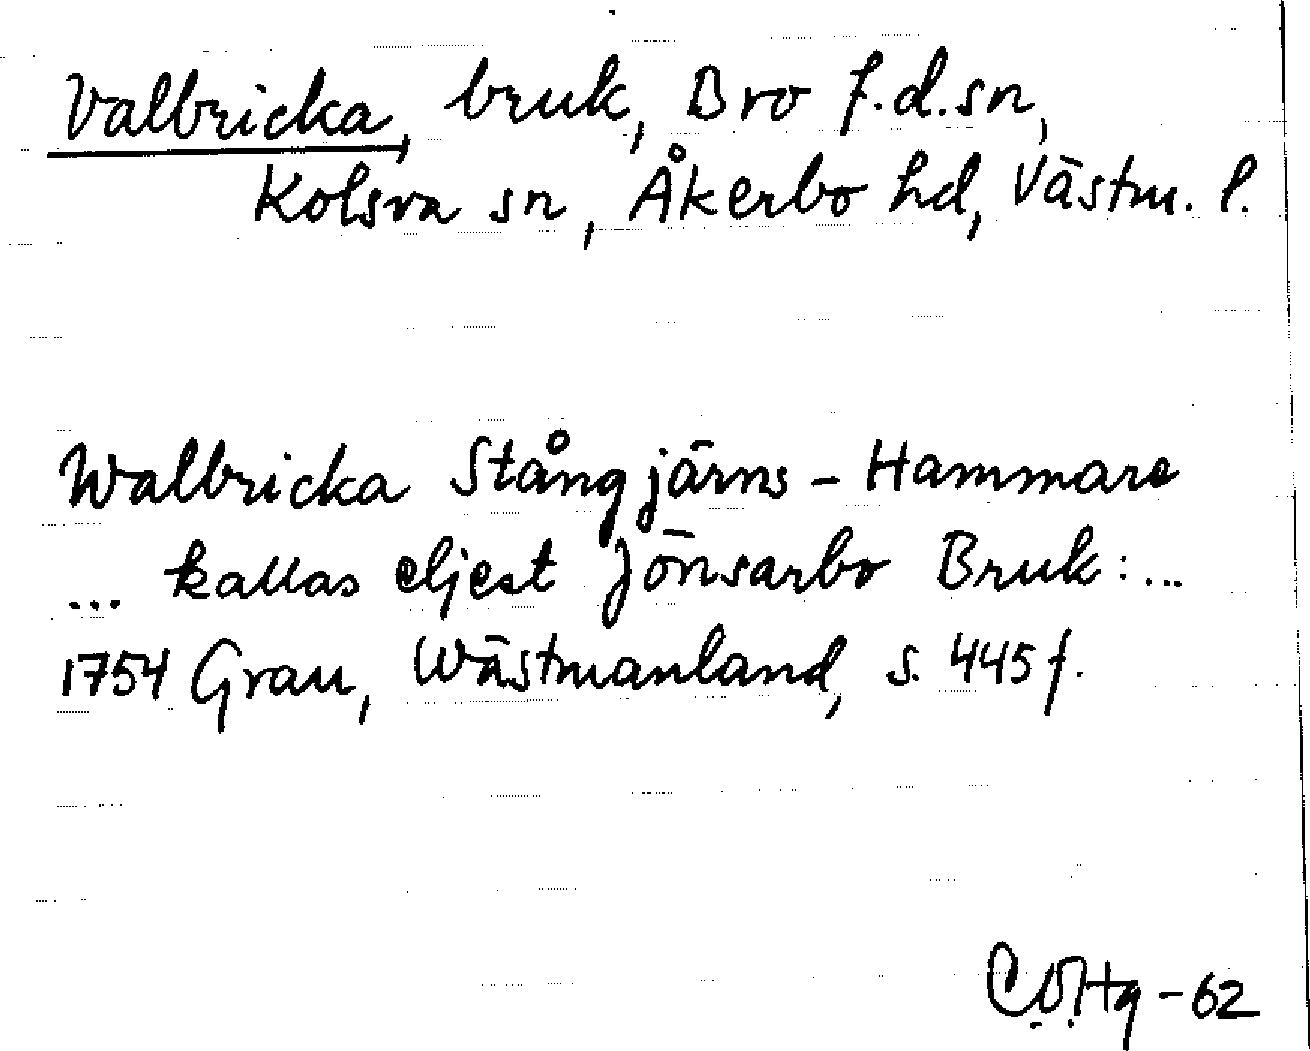 Valbricka, bruk, Bro f.d.sn,
Kolsva sn, Åkerbo hd, Västm. l.
Walbricka Stångjärns-Hammare
... kallas eljest Jönsarbo Bruk:...
1754 Grau, Wästmanland, s. 445 f.
-62